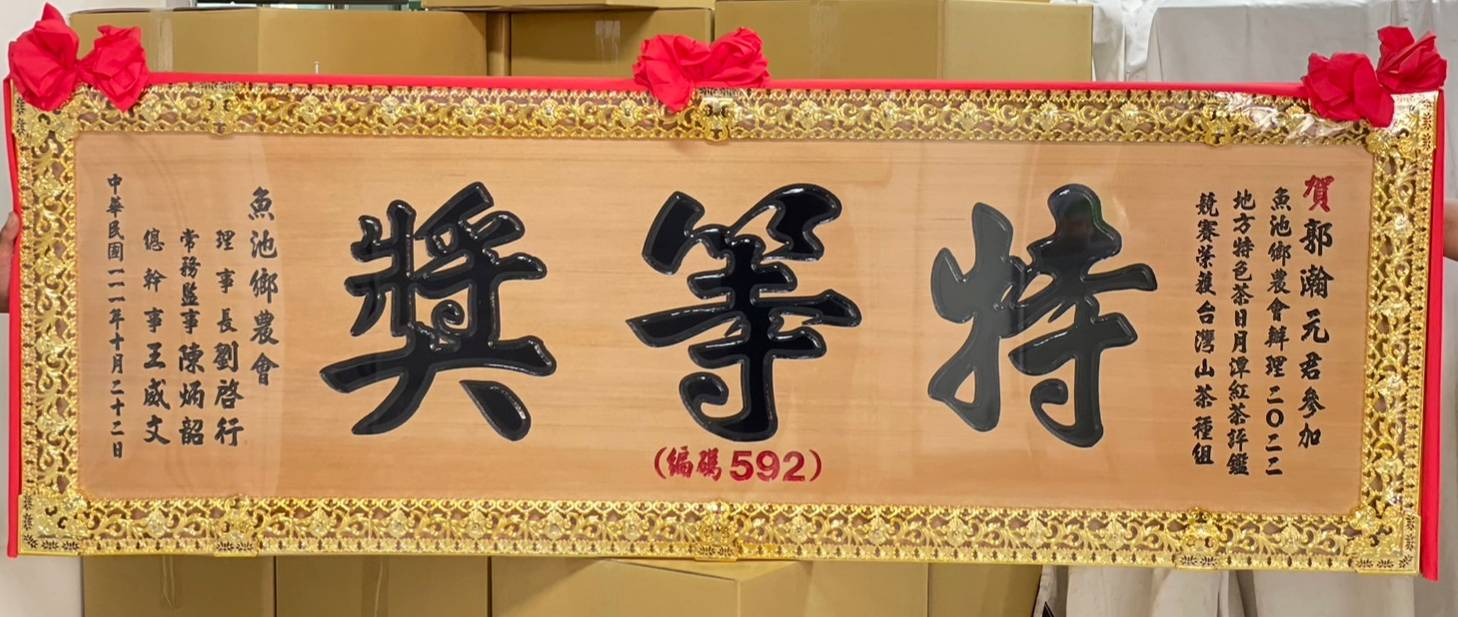 賀郭瀚元君參加
魚池鄉農會辦理二〇二二
地方特色茶日月潭紅茶評鑑
競賽榮獲台灣山茶種組
特等獎
(編碼592)
魚池鄉農會
理事長劉啓行
常務監事陳炳韶
總幹事王威文
中華民國一一一年十月二十二日